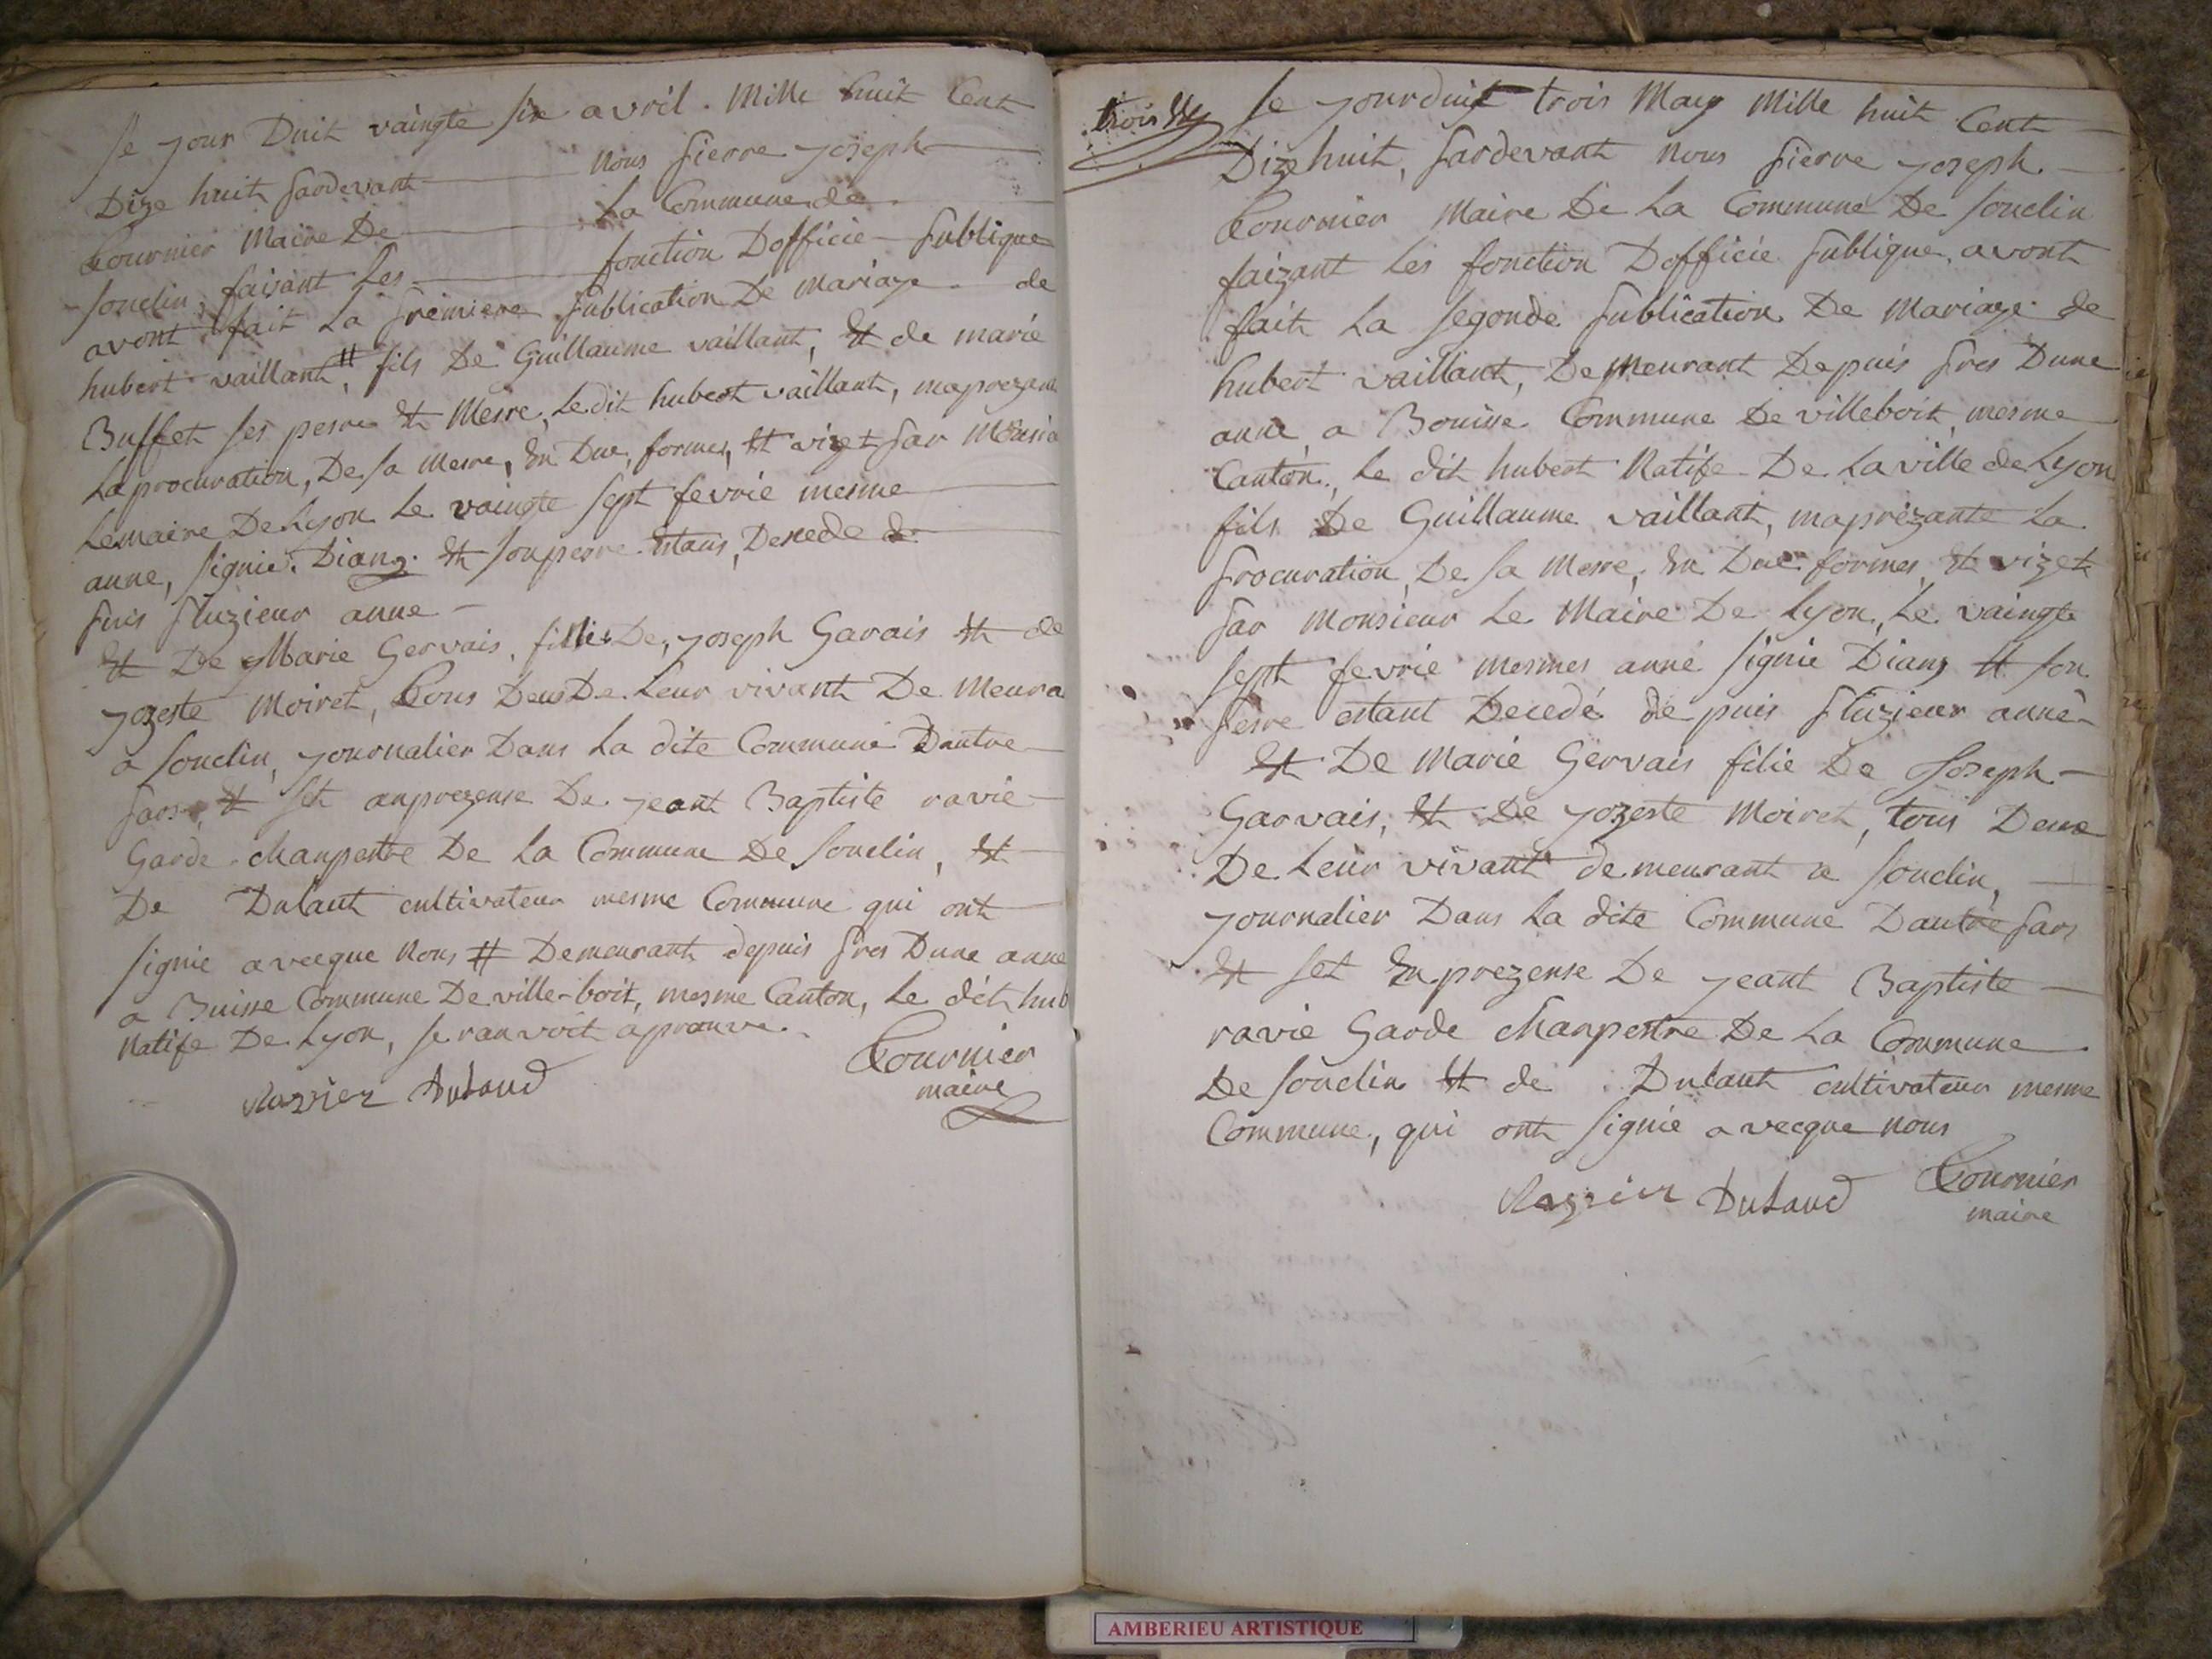 Se jour Duit vaingte six avril. Mille huit Cent
Dize huit pardevant nous pierre joseph
Tournier Maire De La Commune de
Souclin, faisant Les fonction Dofficie publique
avont fait La premiere publication De Mariaye de
hubert vaillant # fils De Guillaume vaillant, Et de marie
Buffet ses pesre Et Mesre, Le dit hubert vaillant, maprezant
La procuration, De sa Mesre, En Due, formes, Et vizet par
Le maire De Lyon Le vaingte sept fevrié mesme
anne, signié. Et son pesre Estans, Decede de
puis pluzieur anne
Et De Marie Gervais, fillie De, joseph Garais Et de
jozeste Moiret, Tous Deus De Leur vivant De Meura
a Souclin, journalier Dans La dite Commune Dautre
pars, Et set anprezense De jeant Baptiste ravié
Garde chanpestre De La Commune De Souclin, Et
De Dulaut cultivateur mesme Commune qui ont
signié avecque Nous # Demeurant depuis pres Dune anne
a Buisse Commune De ville-boit, mesme Canton, Le dit hub
Natife De Lyon, se ranvoit aprouve.
Ravier Dulaud Tournier
maire
Se jourduit trois May Mille huit Cent
Dizehuit, pardevant Nous pierre joseph
Tournier Maire De La Commune De Souclin
faizant Les fonction Dofficié publique, avont
fait La segonde publication De Mariaye de
hubert vaillant, De Meurant Depuis pres Dune
anné a Bouisse Commune De villeboit, mesme
Canton, Le dit hubert Natife De La ville de Lyon
fils De Guillaume vaillant, maprézante La
procuration, De sa Mesre, En Due formes, Et vizet
par Monsieur Le Maire De Lyon, Le vaingte
sept fevrié mesmes anné signié Et son
pesre estant Decedé de puis pluzieur anné
Et De Marie Gervais filié De Joseph
Garvais, Et De jozeste Moiret, tous Deux
De Leur vivant demeurant a Souclin,
journalier Dans La dite Commune Dautre pars
Et set En prezense De jeant Baptiste
ravié Garde chanpestre De La Commune
De Souclin Et de Dulaut cultivateur mesme
Commune, qui ont signié avecque nous
Ravier Dulaud Tournier
maire
AMBERIEU ARTISTIQUE